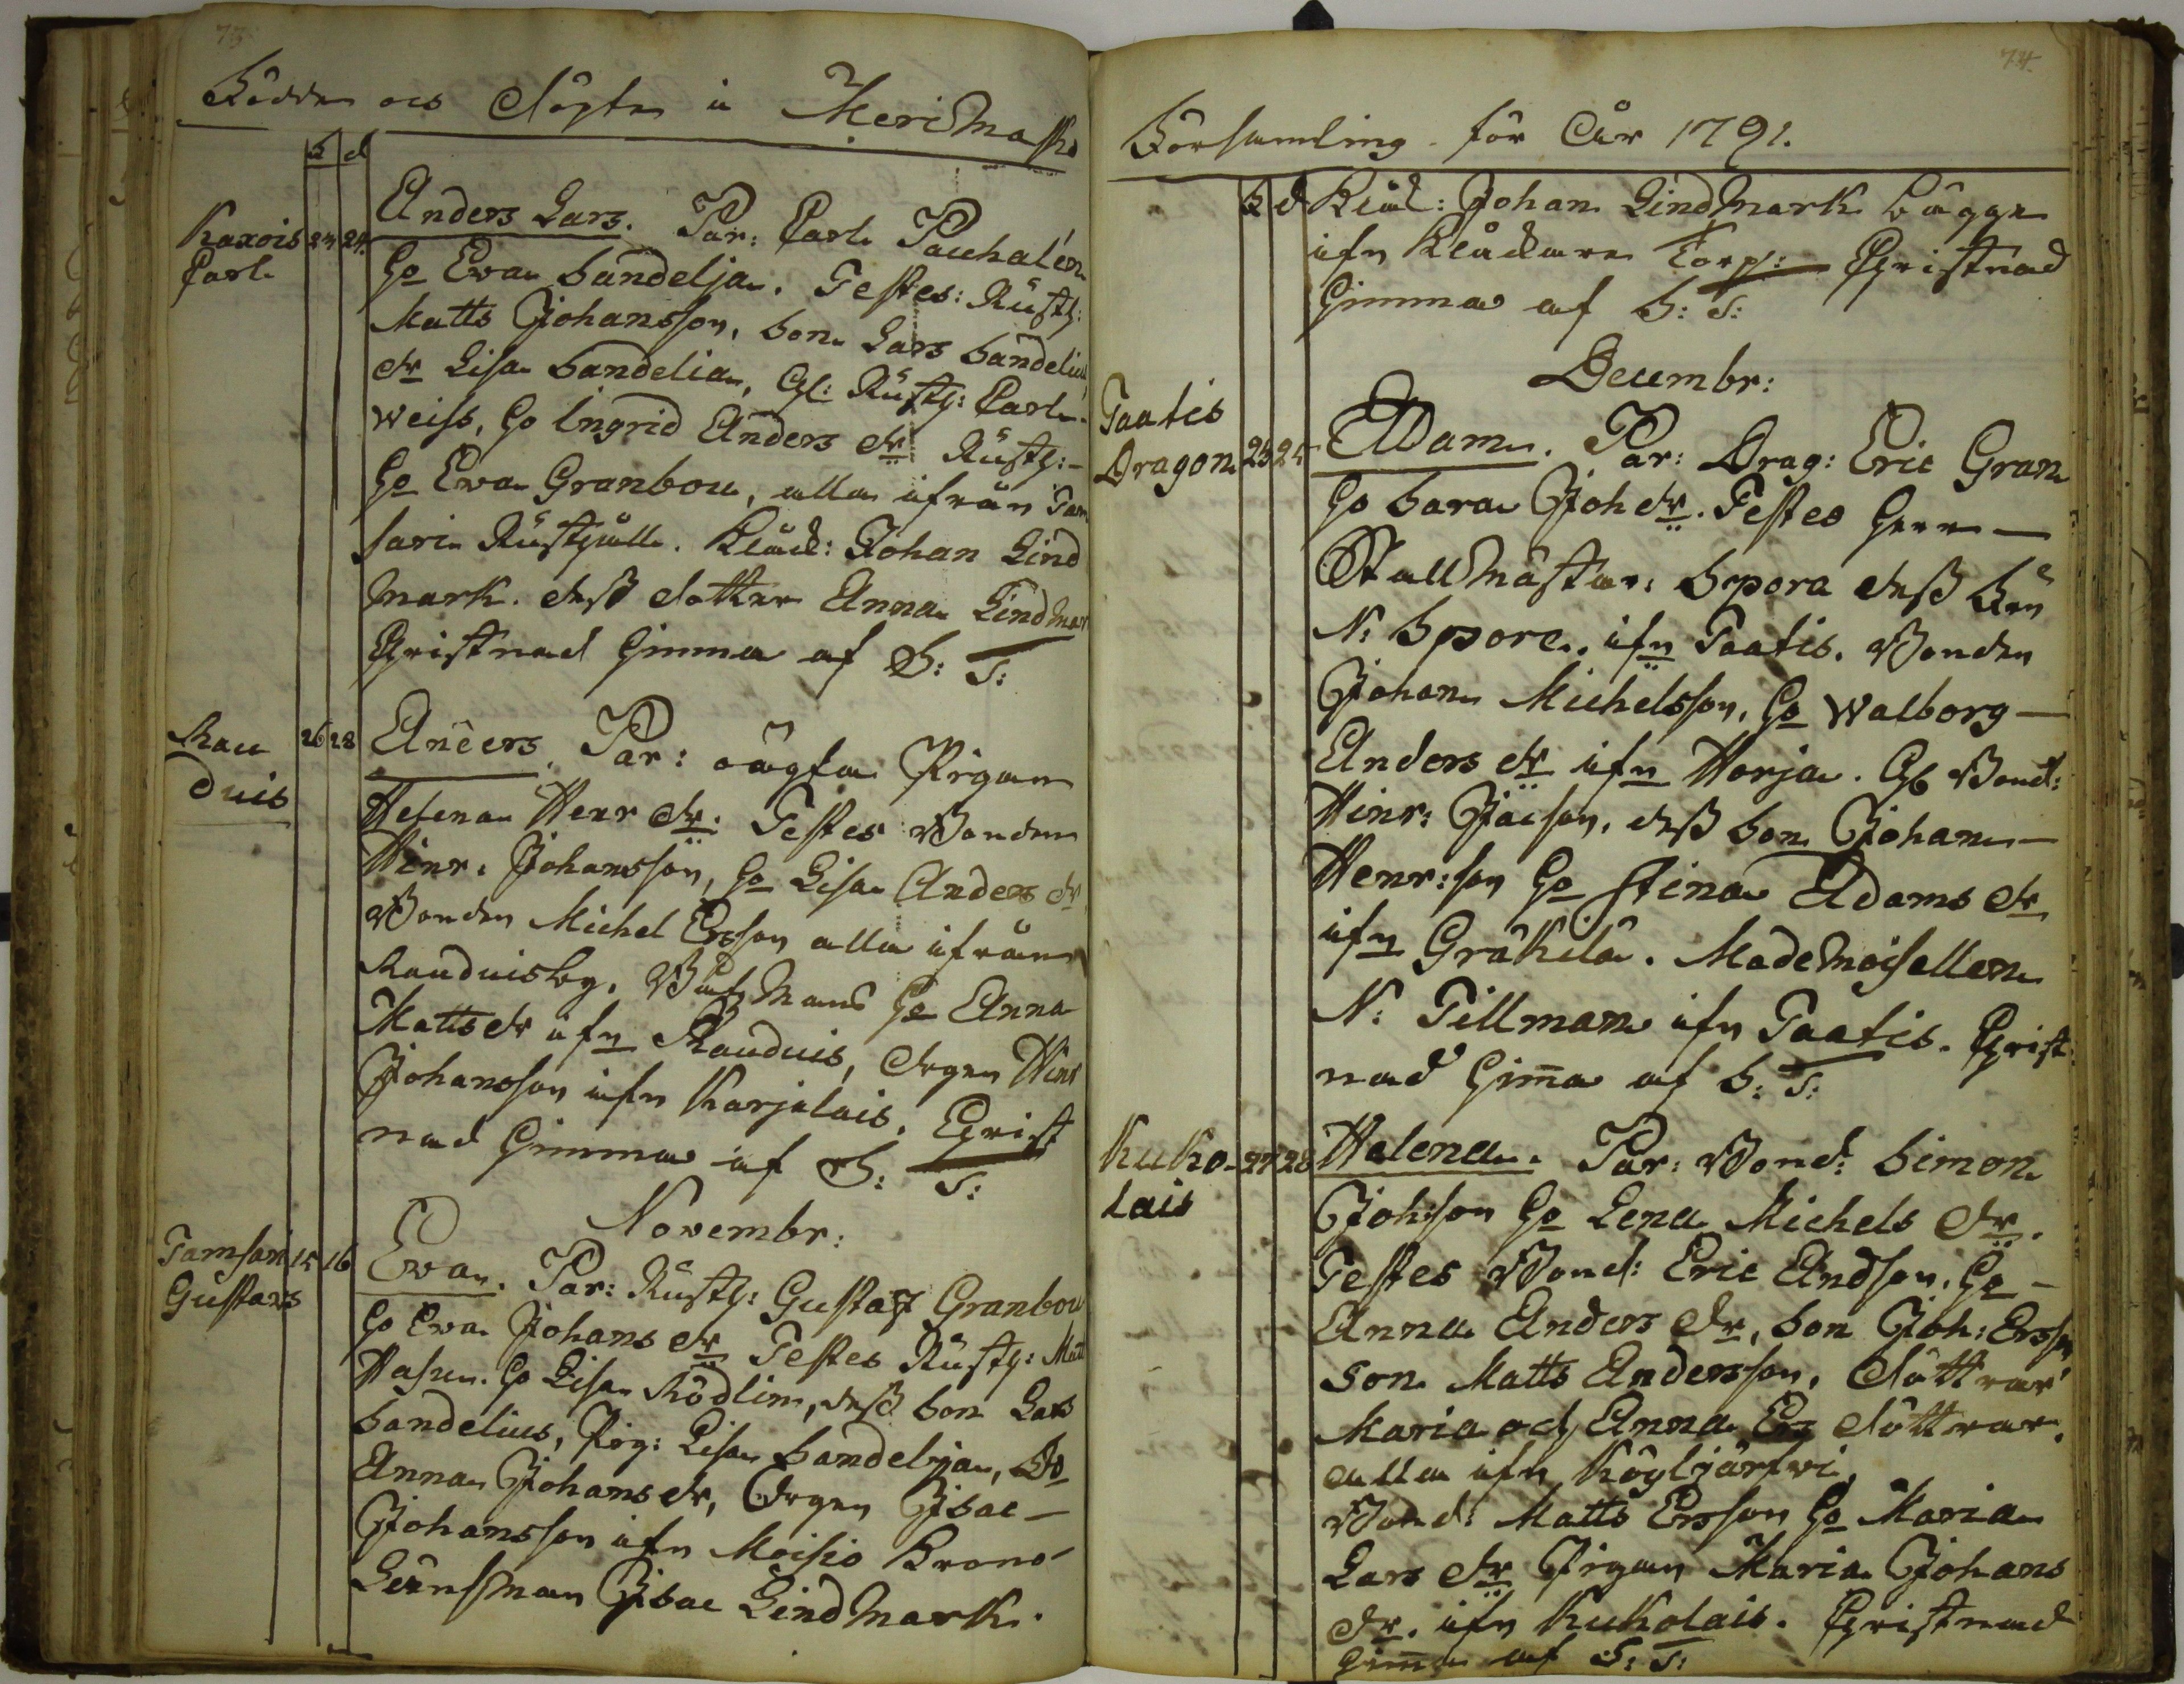 73.
Födde och Döpte i Merimasku
F d
Karois 23 24.
Carl
Anders Lars. Par: Carl Pacchalén
Ho Eva Sandelja. Testes: Rusth:
Matts Johansson, Son Lars Sandelius,
dr Lisa Sandelia, Gl: Rusth: Carl
Weiss, Ho Ingrid Anders dr Rusth:-
Ho Eva Granbou, alla ifrån Tam
sari Rusthåll. Kläck: Johan Lind
mark. dess dotter Anna Lindmar
Christnad hemma af S: T:
Rau 26 28
duis
Anders. Par: oägta Pigan
Helena Henr dr. Testes Bonden
Hinr: Johansson, Ho Lisa Anders dr
Bonden Michel Ersson alla ifrån
Rauduisby. Båtsmans Ho Anna
Matts dr ifn Rauduis, Drgen Hinr
Johansson ifn Karjalais. Christ
nad hemma af S: T:
Novembr:
Tamsari 15 16
Gustavs
Eva. Par: Rusth: Gustaf Granbou
Ho Eva Johans dr Testes Rusth: Matt
Ho Lisa Rödlin, dess Son Lars
Sandelius, Pig: Lisa Sandelja, Do
Anna Johans dr, Drgen Isac -
Johansson ifn Moisio Krono-
Länsman Isac Lindmark.
74.
Församling för År 1791.
F d Kläck: Johan Lindmark bägge
ifn Kläckare Torp: Christnad
hemma af S: T:
Decembr:
Taatis
Dragon 23 25
Adam. Par: Drag: Eric Gran
Ho Sara Joh dr. Testes Herr -
Stallmästar: Spora dess Fru
N: Spore. ifn Taatis. Bonden
Johan Michelsson, Ho Walborg -
Anders dr ifn Horja. Gl Bond:
Hinr: Jacson, dess Son Johan -
Henr:son Ho Stina Adams dr
ifn Gräkilä. Mademoisellen
N: Tillman ifn Taatis. Christ
nad hem̄a af S: T:
Kuko- 27 28
lais
Helena. Par: Bond: Simon
Joh:son Ho Lena Michels dr.
Testes Bond: Eric Andson. Ho -
Anna Anders dr, Son Joh: Ersson
Son Matts Andersson, Döttrar
Maria och Anna Ers döttrar.
alla ifn Kögljärfvi.
Bond: Matts Ersson Ho Maria
Lars dr Pigan Maria Johans
dr. ifn Kukolais. Christnad
hem̄a af S: T: